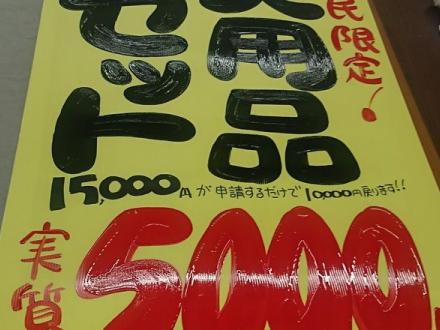 民限定!
用品
セット
15,000円が申請するだけで10,000円戻ります!!
実質
5000